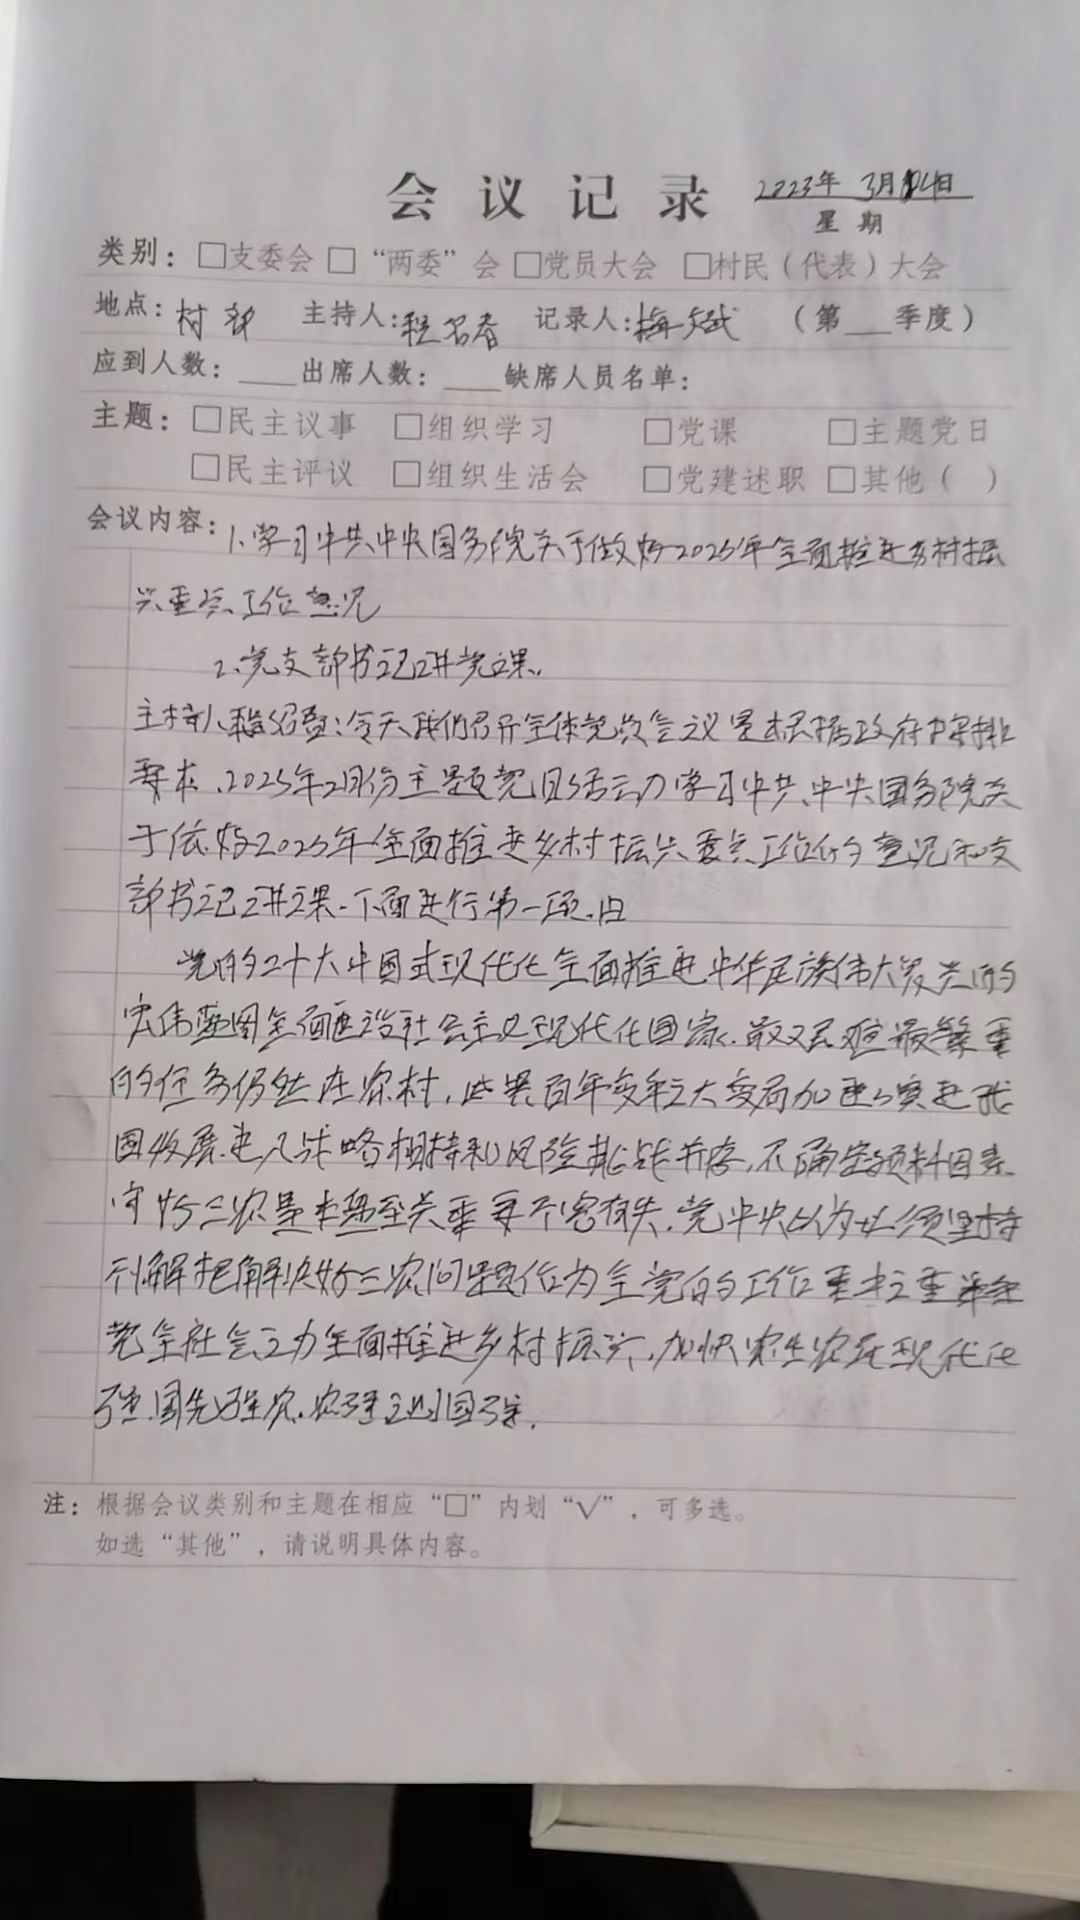 会议记录
2023年 3月24日
星期
类别：□支委会 □“两委”会 □党员大会 □村民（代表）大会
地点：村部 主持人：程 记录人：梅 （第___季度）
应到人数：____出席人数：____缺席人员名单：
主题：□民主议事 □组织学习 □党课 □主题党日
□民主评议 □组织生活会 □党建述职 □其他（ ）
会议内容：1、学习中共中央国务院关于做好2023年全面推进乡村振
兴重点工作意见
2、党支部书记讲党课.
主持人：今天我们召开全体党员会议是根据政府安排
要求、2023年2月份主题党日活动学习中共中央国务院关
于做好2023年全面推进乡村振兴重点工作的意见和支
部书记讲课.下面进行第一项.由
党的二十大中国式现代化全面推进中华民族伟大复兴的
宏伟蓝图全面建设社会主义现代化国家.最艰难最繁重
的任务仍然在农村，世界百年变局加速演进我
国发展进入战略相持和风险挑战并存，不确定预料因素
守好三农基本盘至关重要不容有失.党中央认为必须坚持
解把解决好三农问题作为全党的工作重中之重
党全社会之力全面推进乡村振兴，加快农业农村现代化
强国先强农.农强国强.
注：根据会议类别和主题在相应“□”内划“√”，可多选。
如选“其他”，请说明具体内容。